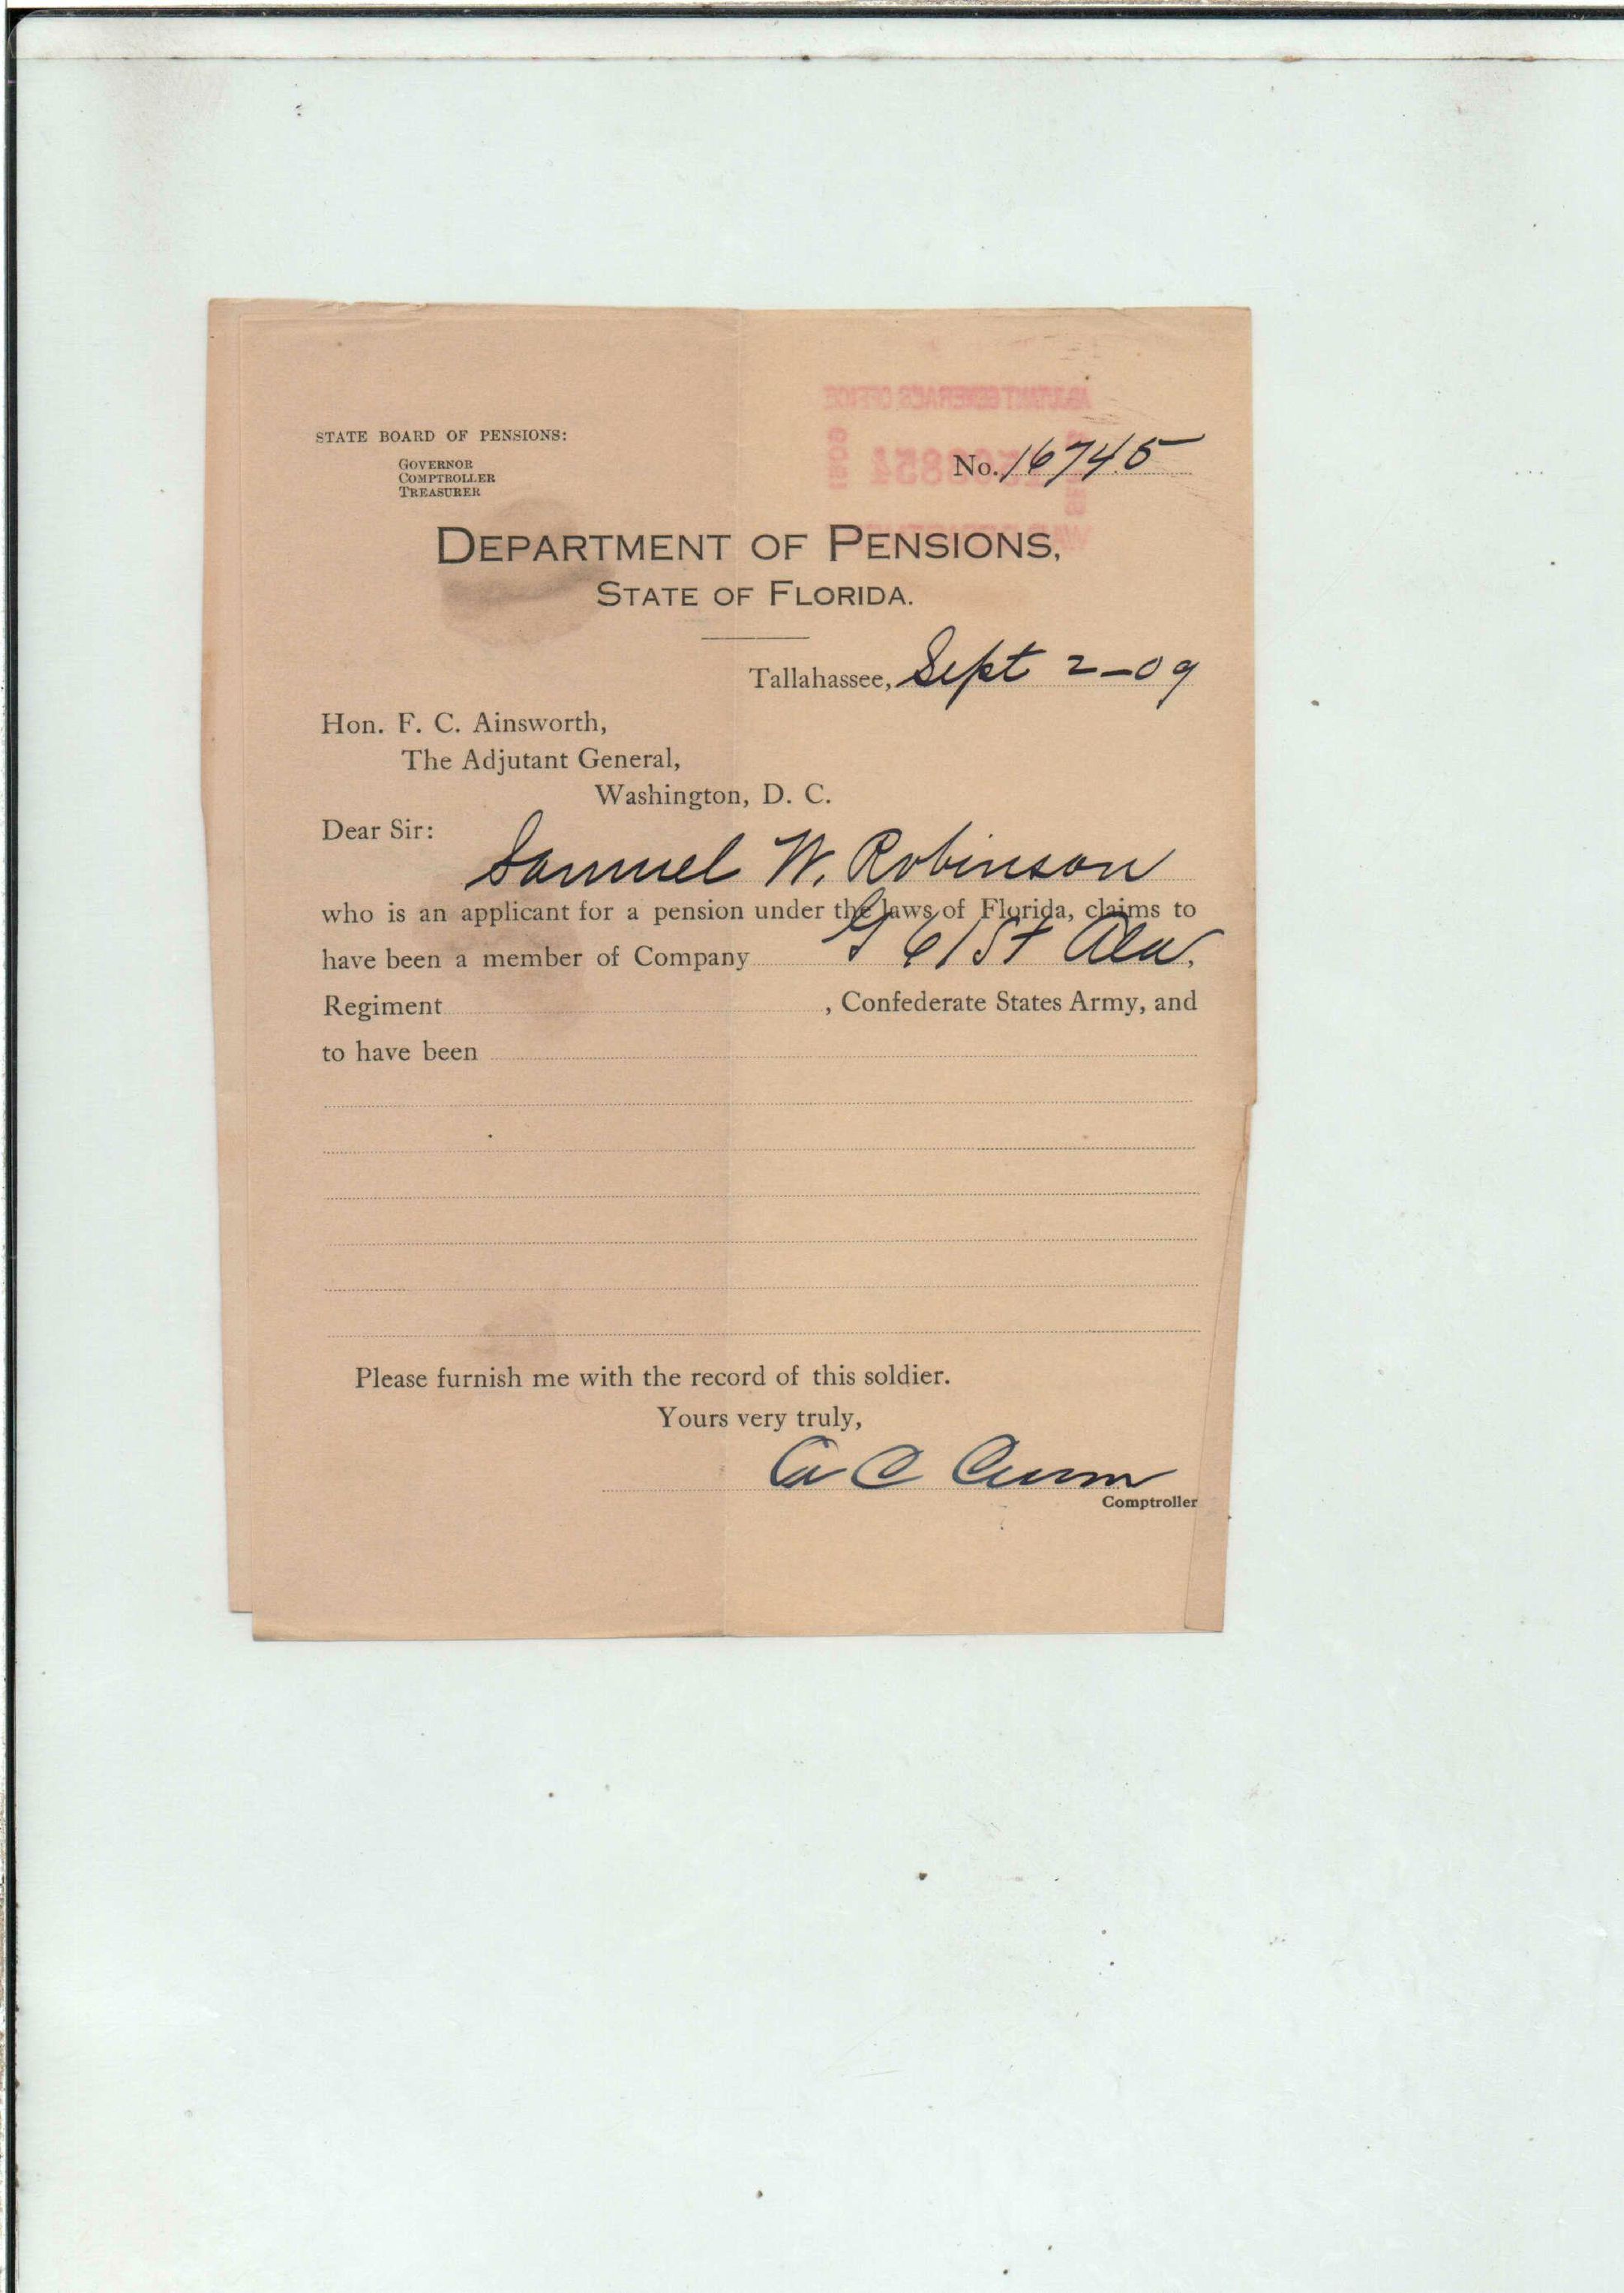 STATE BOARD OF PENSIONS:
GOVERNOR
COMPTROLLER
TREASURER
ADJUTANT GENERAL'S OFFICE
No. 16745
DEPARTMENT OF PENSIONS,
STATE OF FLORIDA.
Tallahassee, Sept 2-09
Hon. F. C. Ainsworth,
The Adjutant General,
Washington, D. C.
Dear Sir:
Samuel W. Robinson
who is an applicant for a pension under the laws of Florida, claims to
have been a member of Company G 61st Ala.
Regiment , Confederate States Army, and
to have been
Please furnish me with the record of this soldier.
Yours very truly,
A C Croom
Comptroller